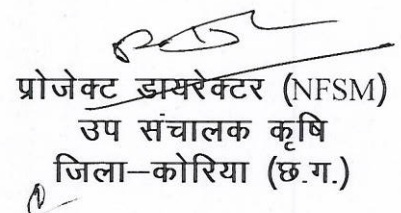 प्रोजेक्ट डायरेक्टर (NFSM)
उप संचालक कृषि
जिला–कोरिया (छ.ग.)